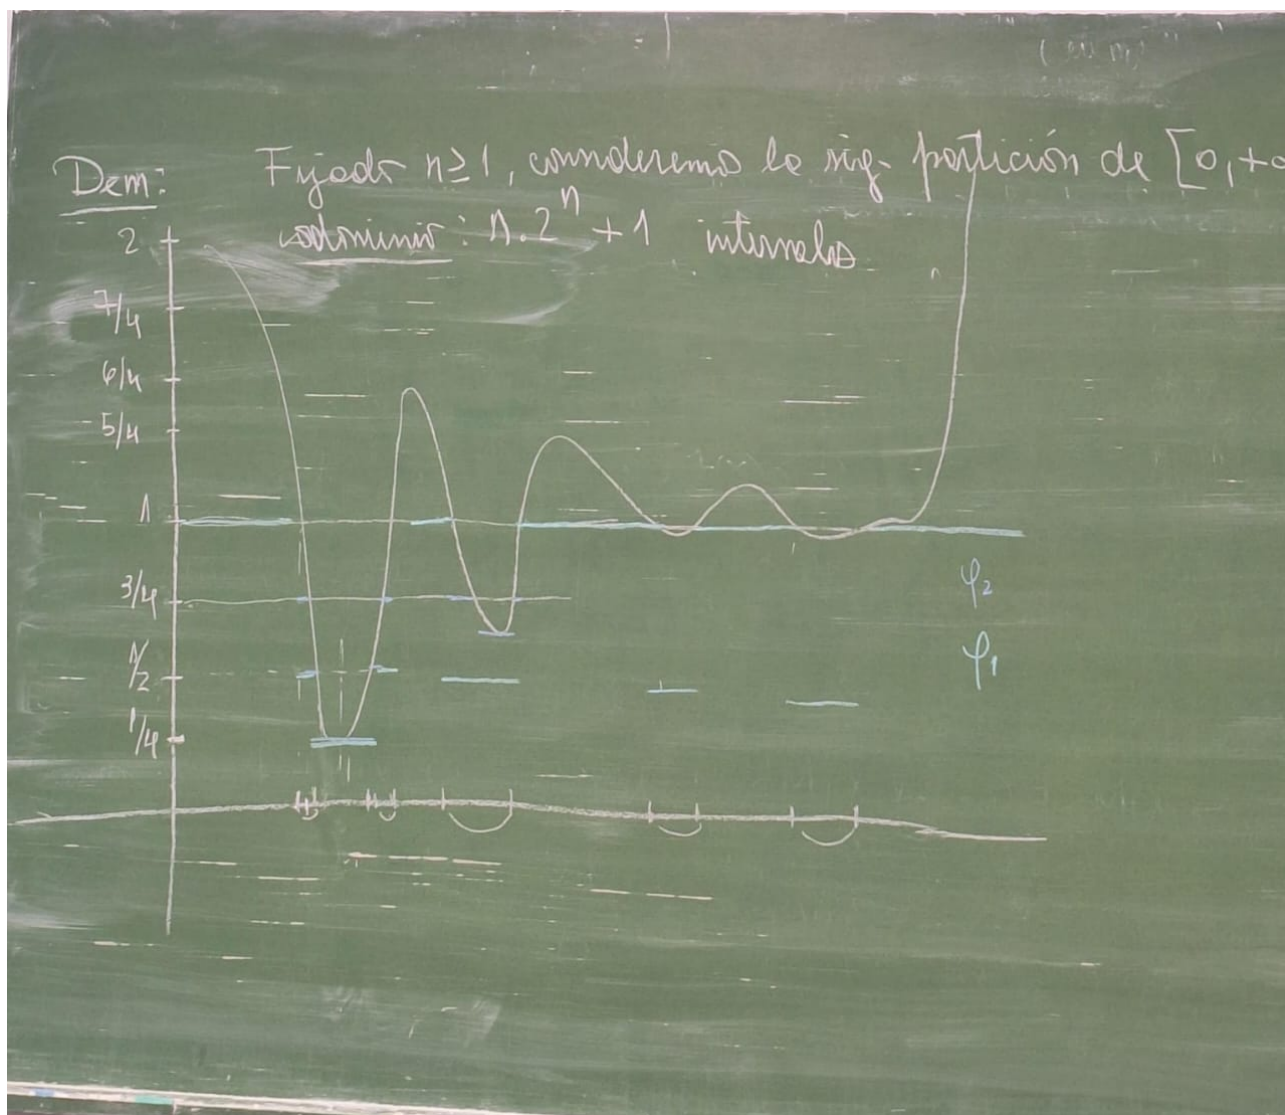 Dem: Fijado n≥1, consideremo la sig. partición de [0,+∞
codominio: n.2^n + 1 intervalos
2
7/4
6/4
5/4
1
3/4
φ2
1/2
φ1
1/4